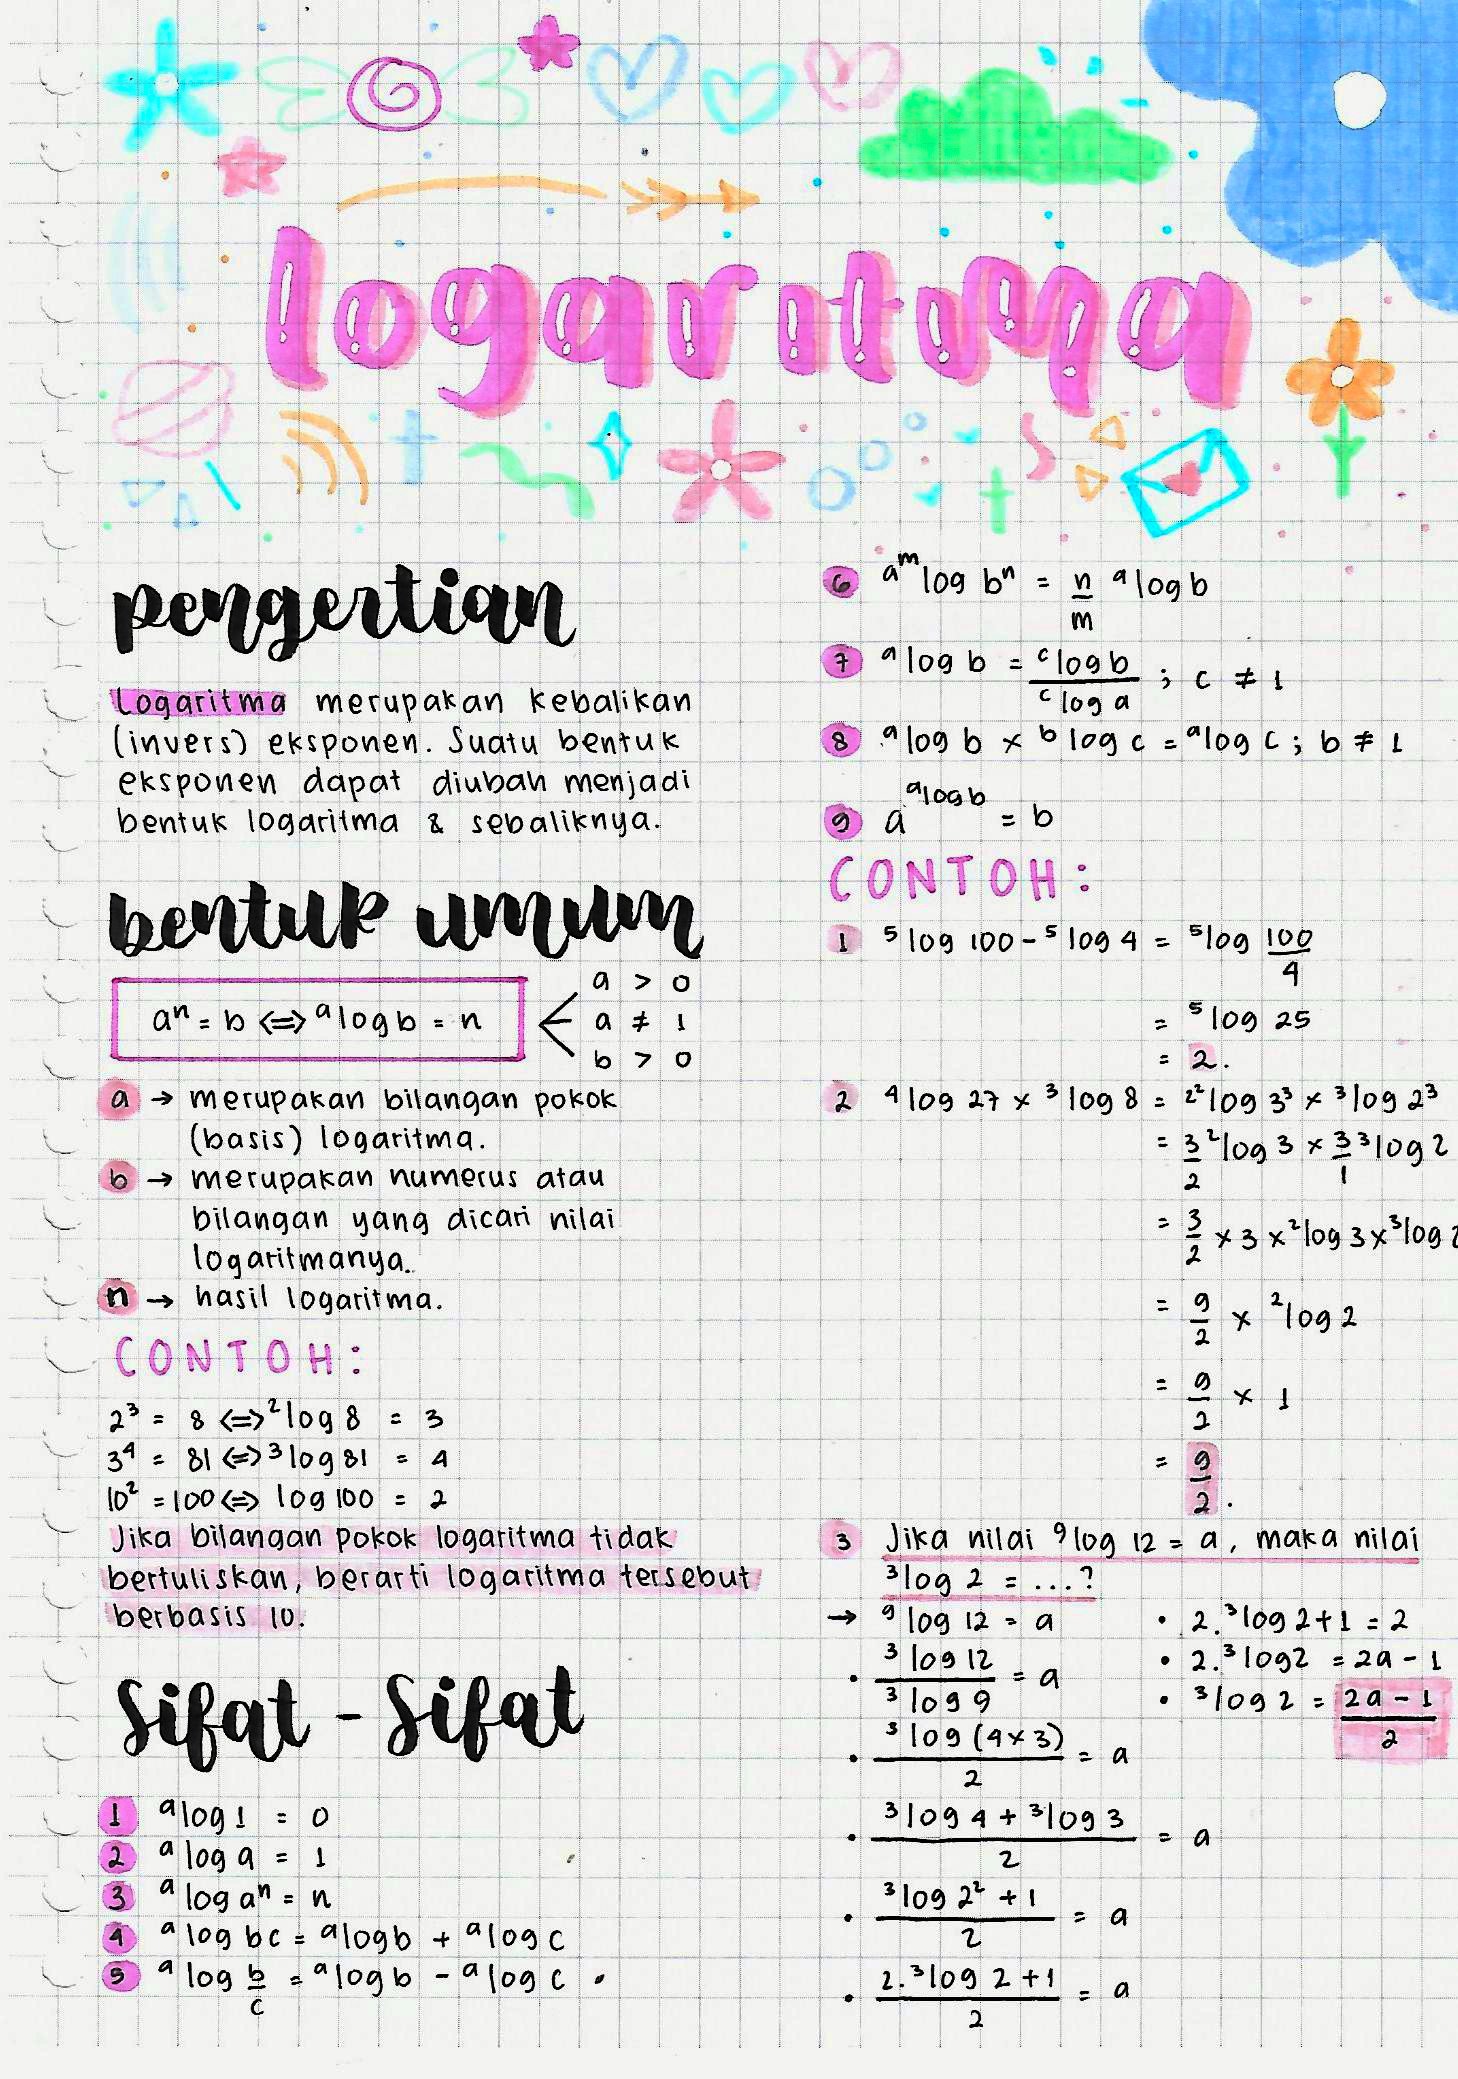 logaritma
pengertian
Logaritma merupakan kebalikan
(invers) eksponen. Suatu bentuk
eksponen dapat diubah menjadi
bentuk logaritma & sebaliknya.
bentuk umum
aⁿ = b <=> ᵃlog b = n
a > 0
a ≠ 1
b > 0
a → merupakan bilangan pokok
(basis) logaritma.
b → merupakan numerus atau
bilangan yang dicari nilai
logaritmanya.
n → hasil logaritma.
CONTOH:
2³ = 8 <=> ²log 8 = 3
3⁴ = 81 <=> ³log 81 = 4
10² = 100 <=> log 100 = 2
Jika bilangan pokok logaritma tidak
bertuliskan, berarti logaritma tersebut
berbasis 10.
Sifat - Sifat
1 ᵃlog 1 = 0
2 ᵃlog a = 1
3 ᵃlog aⁿ = n
4 ᵃlog bc = ᵃlog b + ᵃlog c
5 ᵃlog b/c = ᵃlog b - ᵃlog c
6 aᵐlog bⁿ = n/m ᵃlog b
7 ᵃlog b = ᶜlog b / ᶜlog a ; c ≠ 1
8 ᵃlog b × ᵇlog c = ᵃlog c ; b ≠ 1
9 a^(ᵃlog b) = b
CONTOH:
1 ⁵log 100 - ⁵log 4 = ⁵log 100/4
= ⁵log 25
= 2.
2 ⁴log 27 × ³log 8 = 2²log 3³ × ³log 2³
= 3/2 ²log 3 × 3/1 ³log 2
= 3/2 × 3 × ²log 3 × ³log 2
= 9/2 × ²log 2
= 9/2 × 1
= 9/2.
3 Jika nilai ⁹log 12 = a, maka nilai
³log 2 = ...?
→ ⁹log 12 = a
• ³log 12 / ³log 9 = a
• ³log (4×3) / 2 = a
• ³log 4 + ³log 3 / 2 = a
• ³log 2² + 1 / 2 = a
• 2.³log 2 + 1 / 2 = a
• 2.³log 2 + 1 = 2
• 2.³log 2 = 2a - 1
• ³log 2 = 2a - 1 / 2